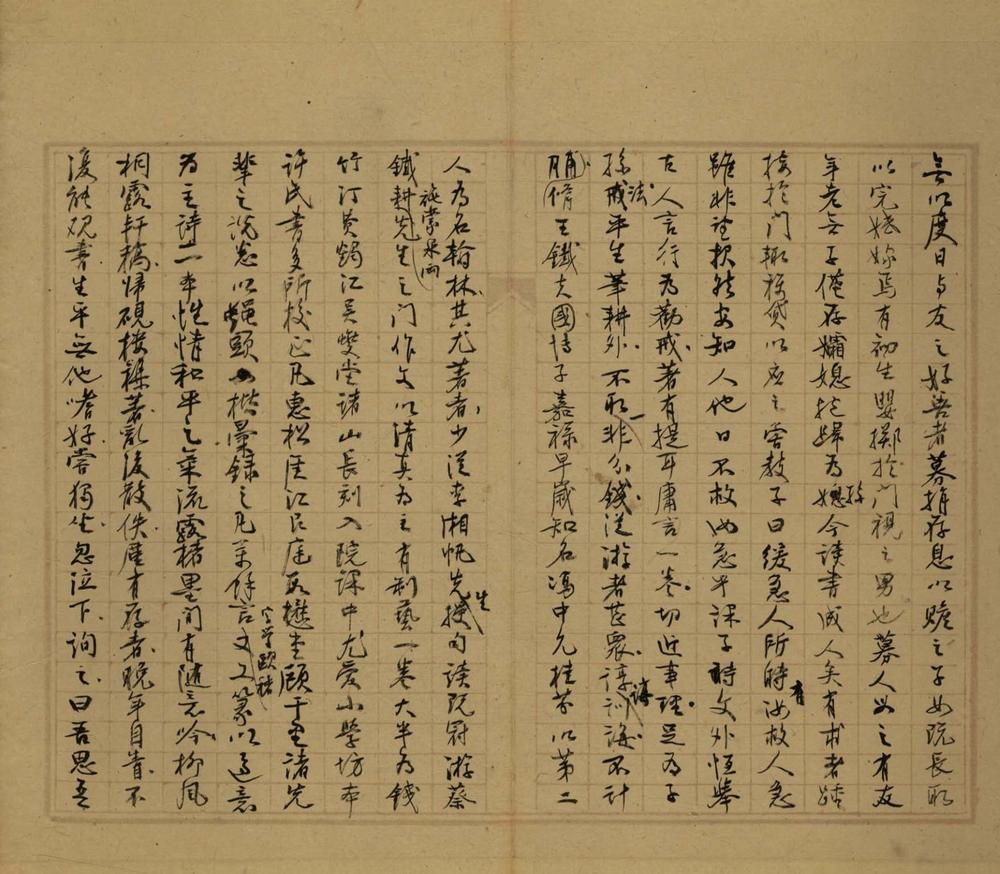 無以度日与友之好善者募捐存息以贍之子女既長取
以完姻嫁焉有初生嬰擲於門視之男也募人乳之有友
年老無子僅存孀媳抱歸為孫媳今讀書成人矣有求者踵
接於門輒移貸以應之嘗教子曰緩急人所時有汝救人急
雖非望報然安知人他日不救汝急乎課子時文外恒舉
古人言行為勸戒著有提耳庸言一卷切近事理足為子
孫法戒平生筆耕外不取一非分錢從游者甚衆諄諄訓誨不計
脯脩王鐵夫國博子嘉祿早歲知名馮中允桂芬以第二
人為名翰林其尤著者少從李湘帆先生授句讀既冠游蔡
鐵耕先生施棠泉兩之門作文以清真為主有制藝一卷大半為錢
竹汀黃蠲江吳燮堂諸山長刻入院課中尤愛小學坊本
許氏書多所校正凡惠松厓江艮庭段懋堂顧千里諸先
輩之說悉以蠅頭小楷彙錄之凡萬餘言又工篆字學歐褚以適意
為主詩一本性情和平之氣流露楮墨間有隨意吟柳風
桐露軒稿歸硯樓襍著亂後散佚廑有存者晚年自眚不
復能硯書生平無他嗜好嘗獨坐忽泣下詢之曰吾思吾